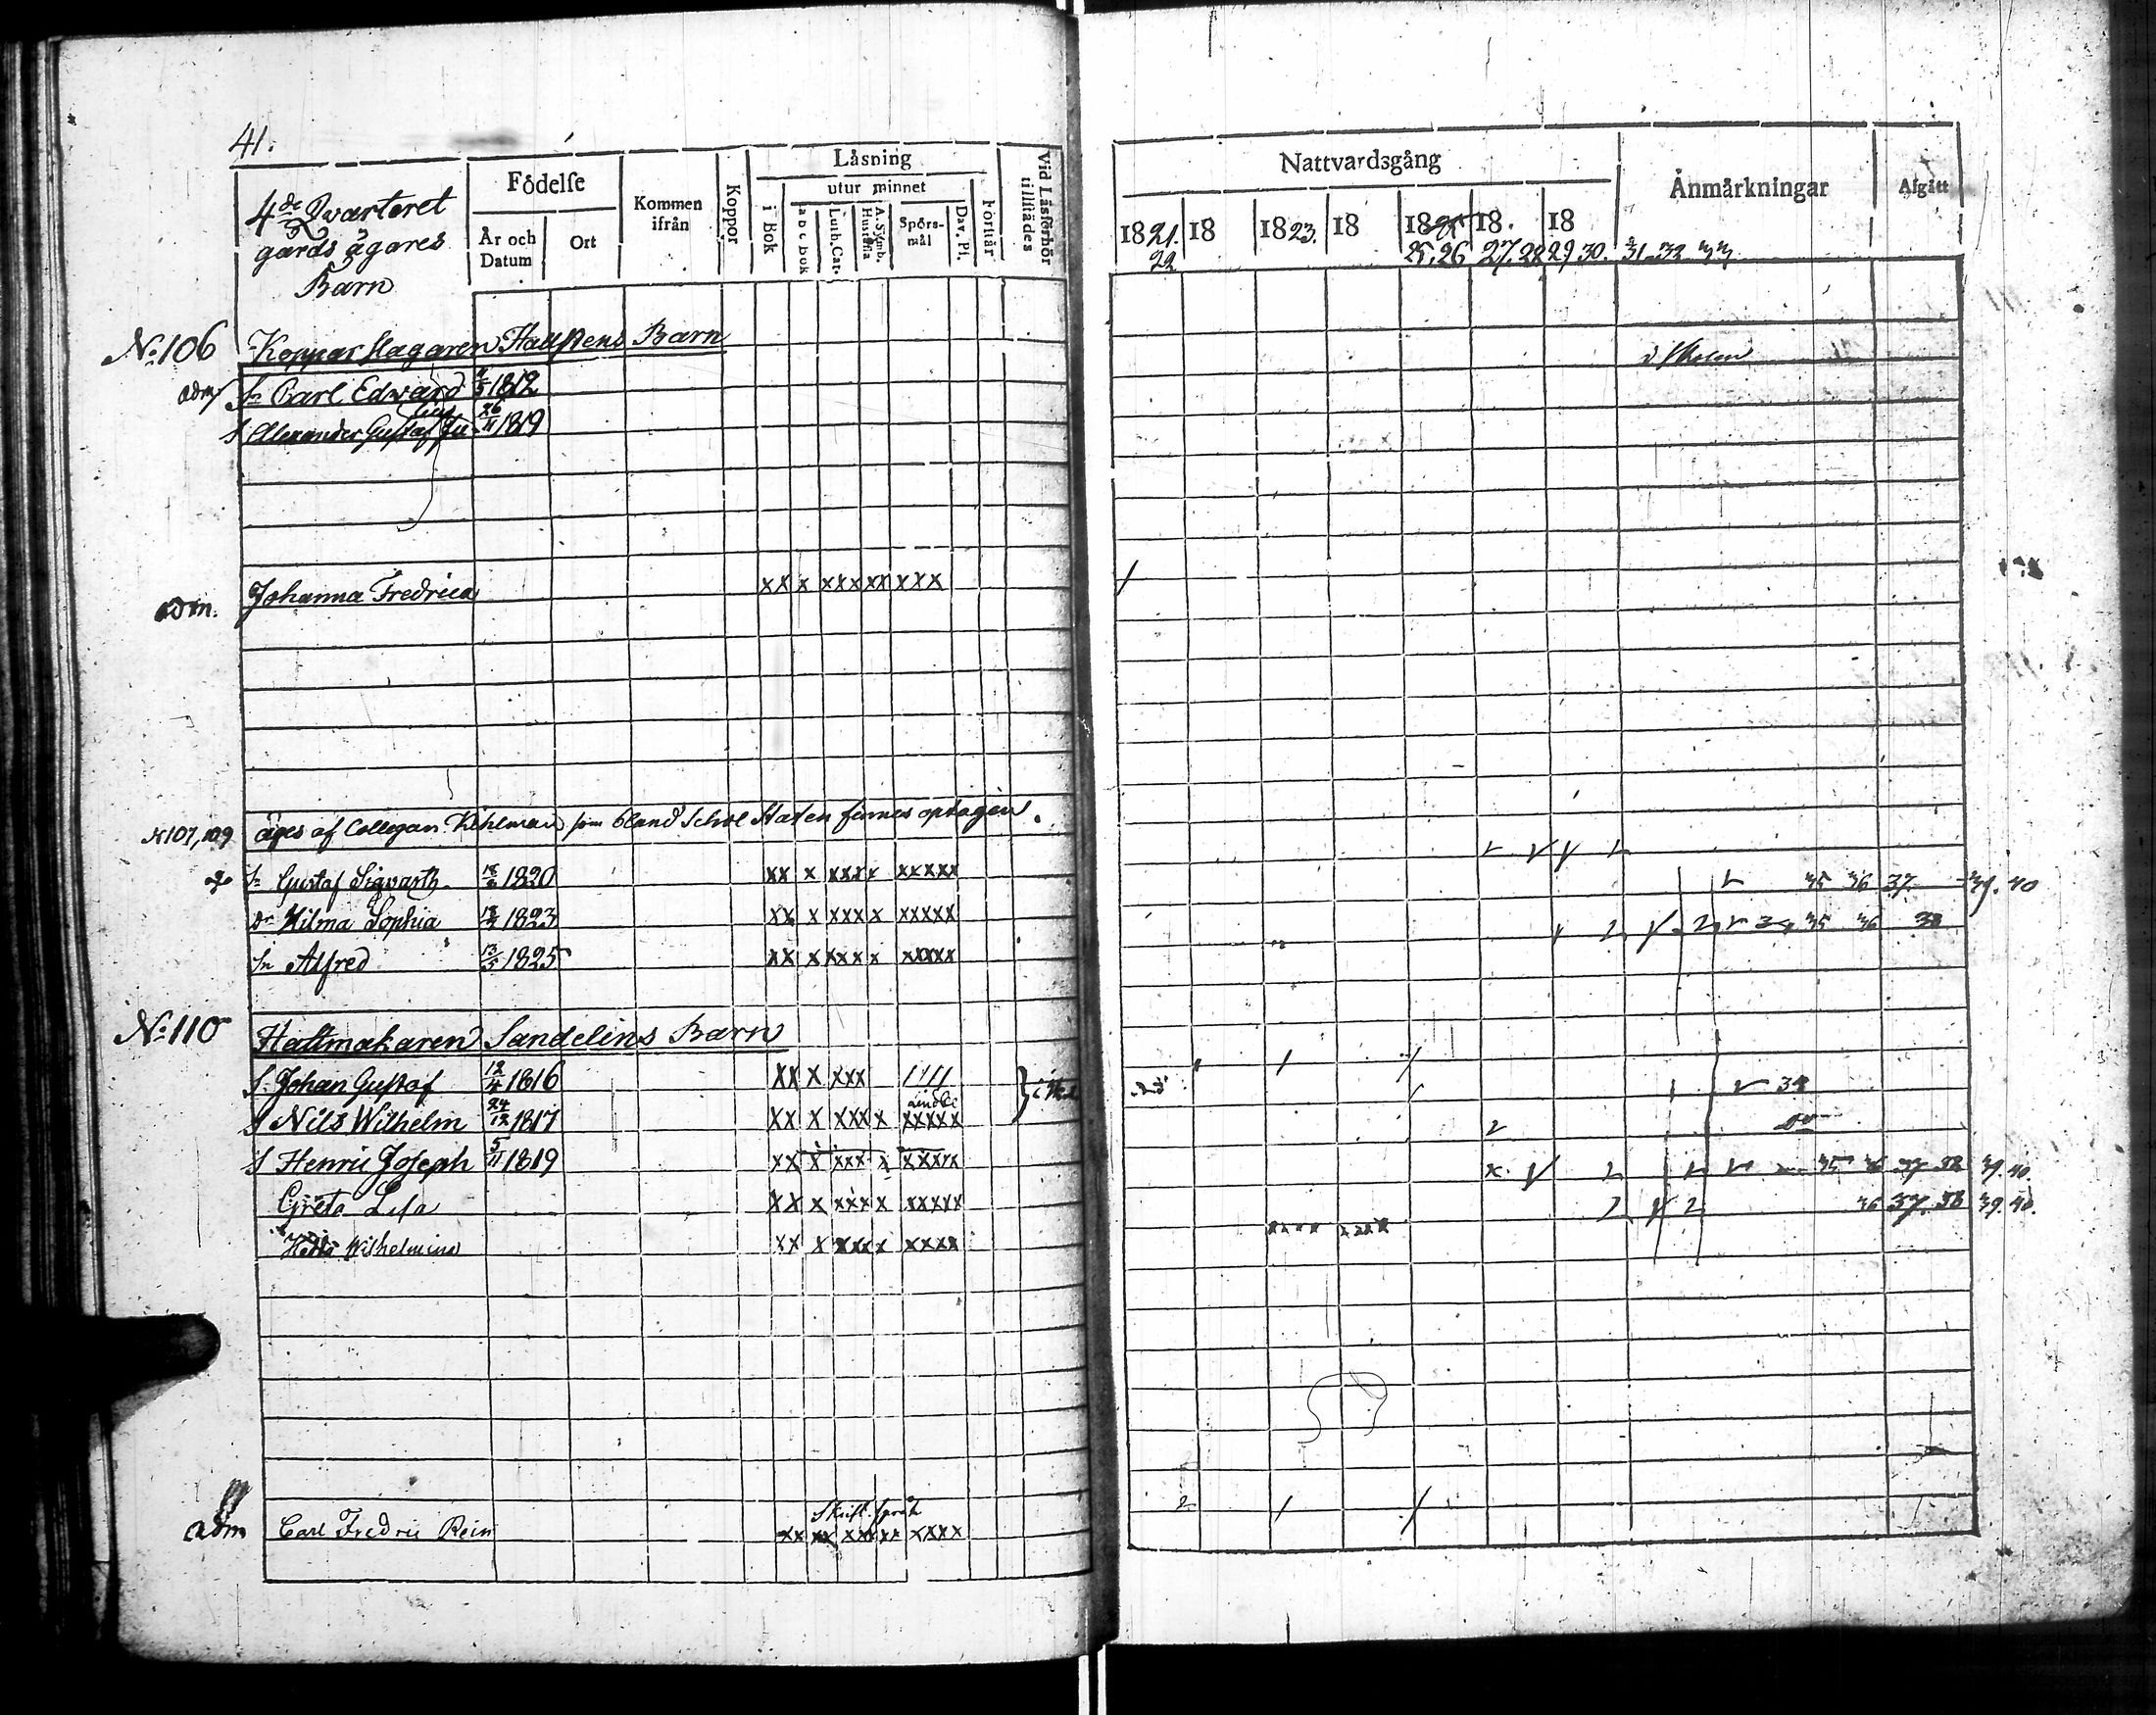 41.
4de Qvarteret
gårds ägares
Barn
Födelse
År och Datum
Ort
Kommen ifrån
Koppor
Läsning
i Bok
utur minnet
a b c bok
Luth. Cat.
Hustafla
A. Symb.
Spörsmål
Dav. Ps.
Förstår
Vid Läsförhör tillstädes
Nattvardsgång
1821. 18 1823. 18 18 18. 18
22 25, 26 27. 28 29 30. 31 32
Anmärkningar
Afgått
No. 106 Kopparslagaren Hallstens Barn
adm Sn Carl Edward 1812
S Alexander Gustaf 26/11 1819
adm. Johanna Fredrica xx x xxxxx xxx /
N 107, 109 äges af Collegan Kihlman som bland Schol Staten finnes optagen.
Sn Gustaf Sigvarth 1820 xx x xxxx xxxxx
35 36 37. 39. 40
dr Hilma Sophia 1823 xx x xxxx xxxxx
35 36 38
Sn Alfred 13/5 1825 xx x xxxx xxxxx
No. 110 Hattmakaren Sandelins Barn
S. Johan Gustaf 12/4 1816 xx x xxx
S Nils Wilhelm 24/12 1817 xx x xxxx xxxxx
S Henric Joseph 5/11 1819 xx x xxx x xxxxx
35 36 37 38 39. 40.
Greta Lisa xx x xxxx xxxxx
36 37. 38 39. 40.
Hedda Wilhelmina xx x xxxx xxxx
Skrift. språk
adm Carl Fredric Rein xx xx xxxxx xxxx